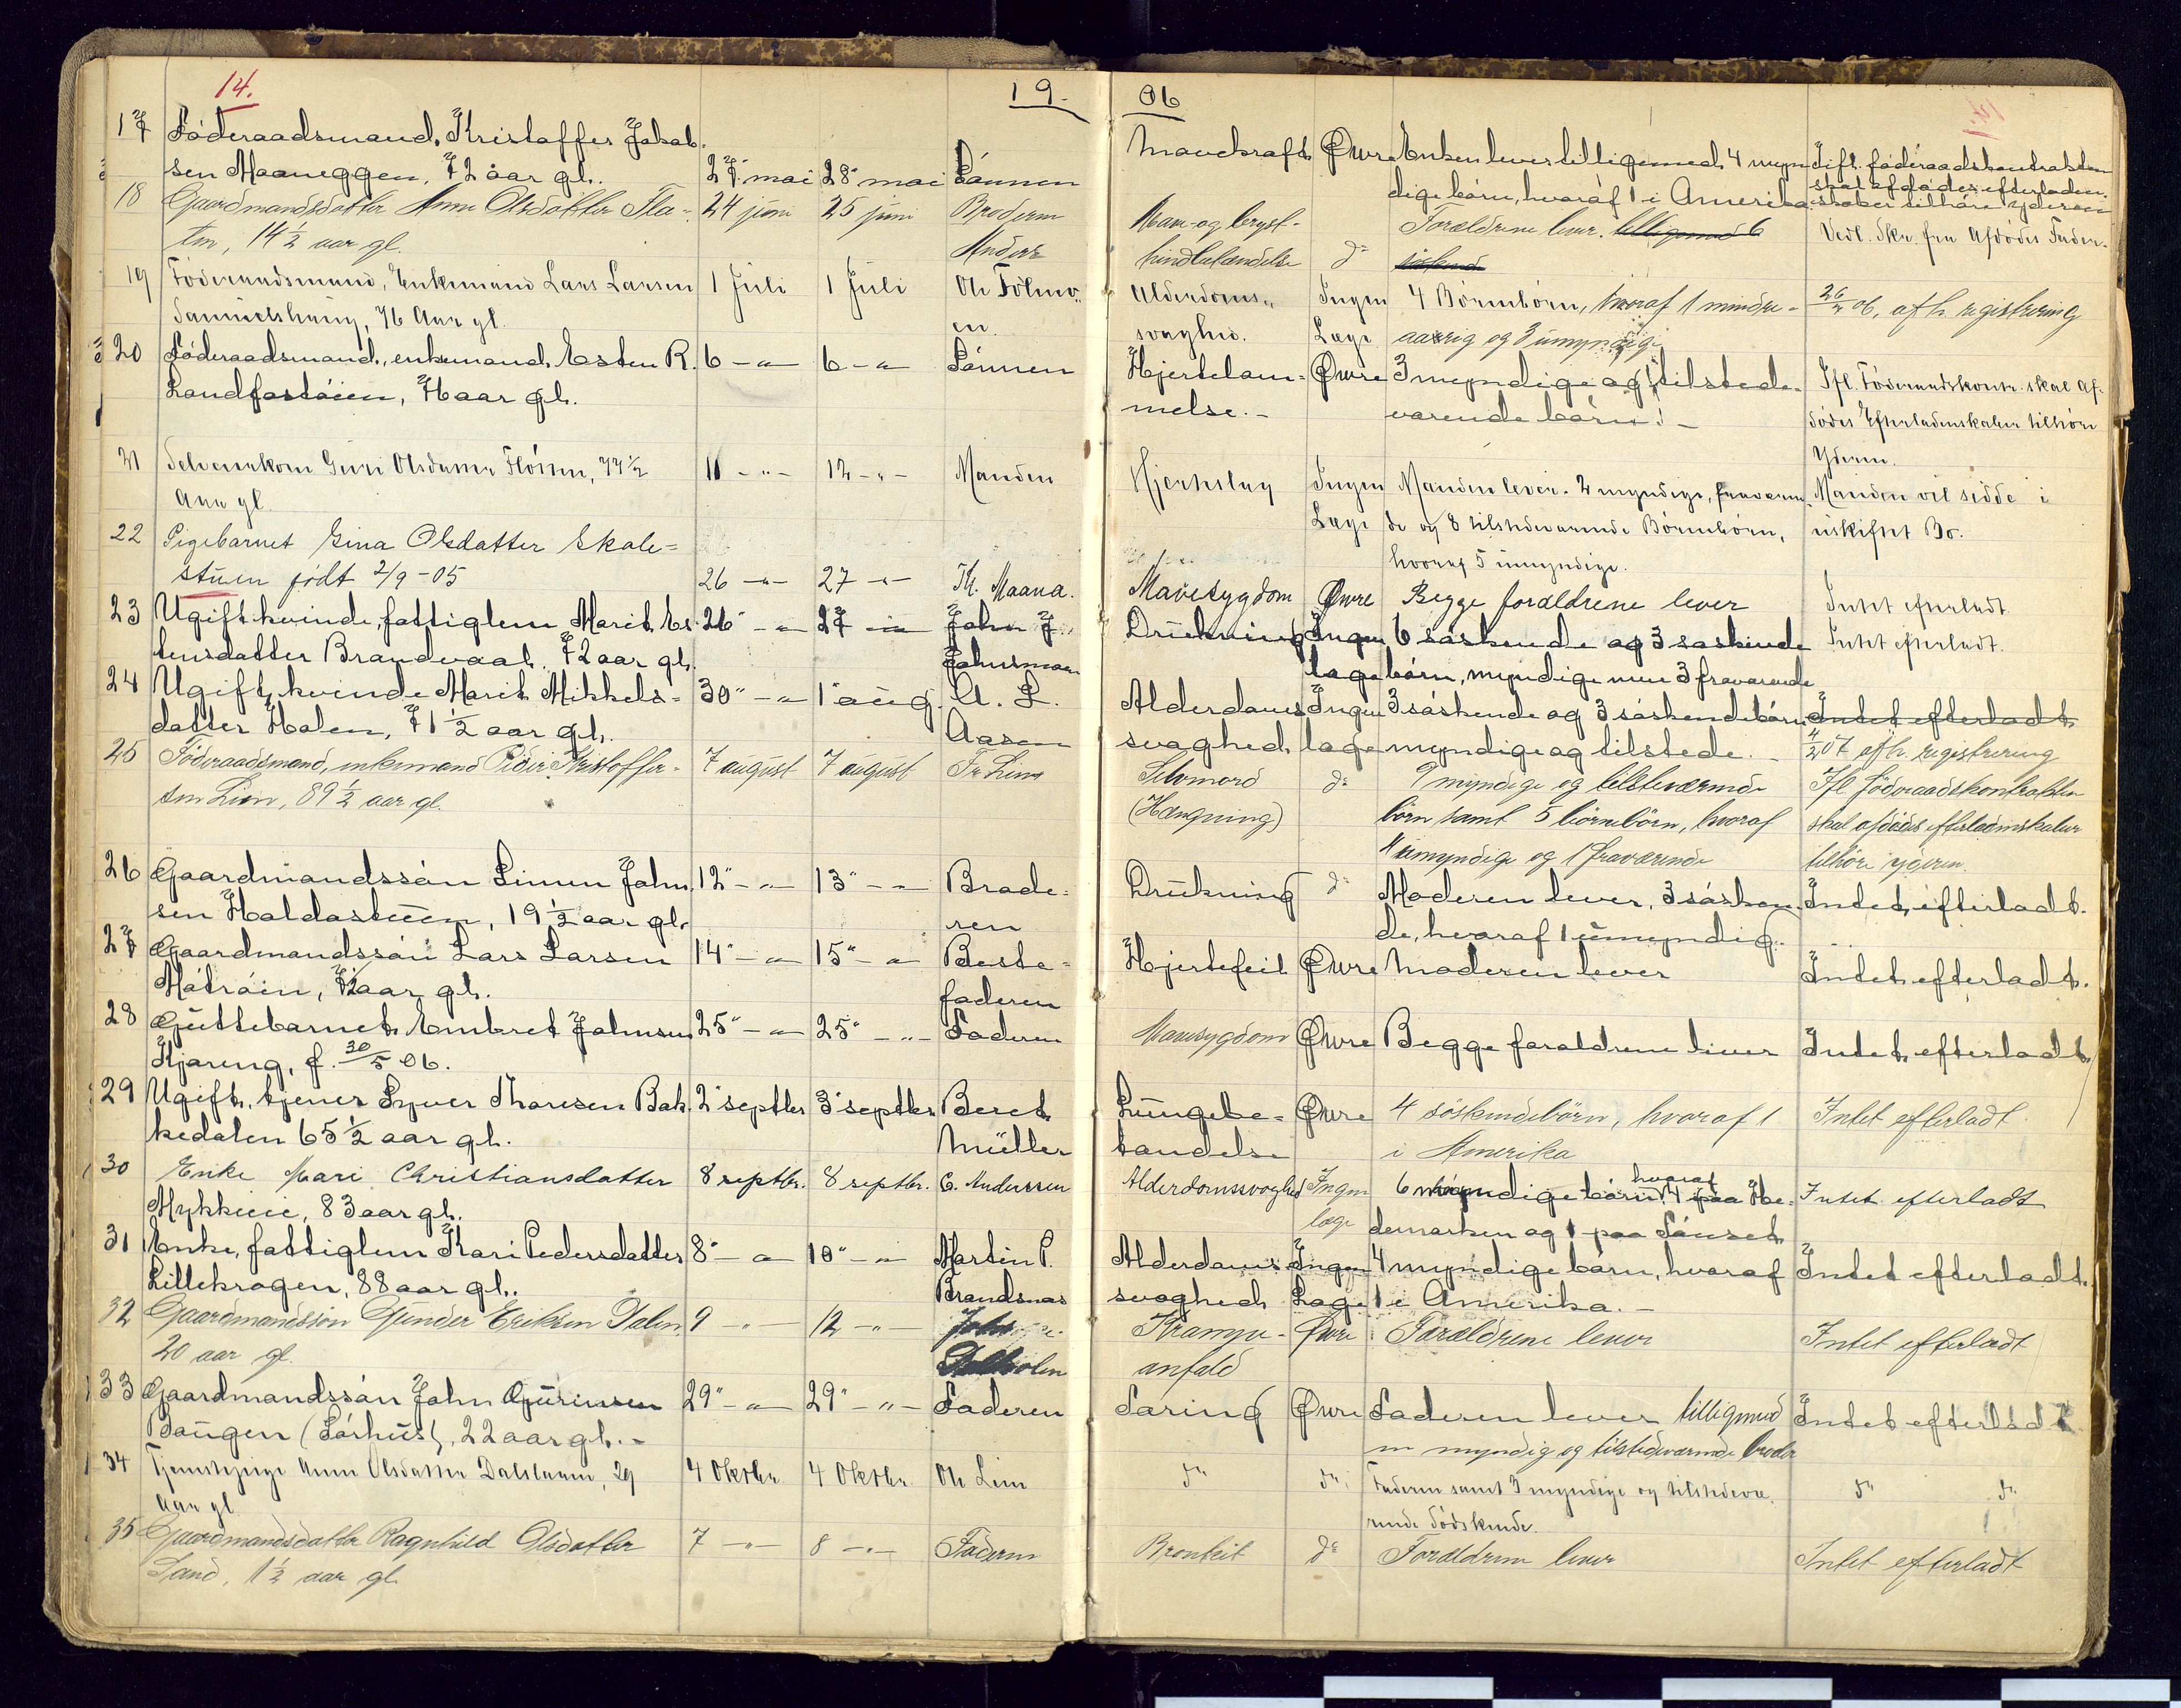 14.
19-
06
17 Föderaadsmand, Kristoffer Jakob-
sen Maaneggen, 72 aar gl. 27" mai 28" mai Sönnen
Mavekraft Øwre Enken lever tilligemed 4 myn-
dige börn, hvoraf 1 i Amerika.
Ifl. föderaadskontrakten
skal afdödes efterladen-
skaber tilhöre yderen
18 Gaardmandsdatter Anne Olsdatter Fla-
ten, 14 1/2 aar gl. 24 juni 25 juni Broderen
Anders
Mave- og bryst-
hindbetændelse do Forældrene lever. tilligemed 6
söskende
Vedl. Skr. fra Afdödes Fader.
19 Föderaadsmand, Enkemand Lars Larsen
Samuelshaug, 76 Aar gl. 1 Juli 1 Juli
Alderdoms-
svaghed. Ingen
Læge 4 Börnebörn, hvoraf 1 mindre-
aarig og 3 umyndige
26/2 06, afh. registrering
20 Föderaadsmand, enkemand Esten R.
Landfastöien, 74 aar gl. 6 -"- 6 -"- Sönnen
Hjertelam-
melse.- Øwre 3 myndige og tilstede-
værende börn.-
Ifl. Föderaadskontr. skal Af-
dödes Efterladenskaber tilhöre
Yderen.
21 Selveierkone Guri Olsdatter Flötten, 77 1/2
Aar gl. 11 -"- 12 -"- Manden
Hjerteslag Ingen
Læge Manden lever. 2 myndige, fraværen-
de og 8 tilstedeværende Börnebörn,
hvoraf 5 umyndige.
Manden vil sidde i
uskiftet Bo.
22 Pigebarnet Gina Olsdatter Skale-
stuen födt 2/9-05 26 -"- 27 -"- K. Maana.
Mavesygdom Øwre Begge forældrene lever Intet efterladt.
23 Ugift kvinde, fattiglem Marit Es-
tensdatter Brandvaal. 72 aar gl. 26" -"- 27 -"- John J.
Johnsmoen
Drukning Ingen
læge 6 söskende og 3 söskende
börn, myndige men 3 fraværende
Intet efterladt.
24 Ugift, kvinde Marit Mikkels-
datter Holen, 71 1/2 aar gl. 30" -"- 1" aug. A. L.
Aasen
Alderdoms
svaghed Ingen
læge 3 söskende og 3 söskendebörn
myndige og tilstede.-
Intet efterladt.
4/2 07 afh. registrering
25 Föderaadsmand, enkemand Peder Kristoffer-
sen Lien, 89 1/2 aar gl. 7 august 7 august Fr. Lien
Selvmord
(Hængning) do 9 myndige og tilstedeværende
börn samt 5 börnebörn, hvoraf
4 umyndige og 1 fraværende
Ifl. föderaadskontrakten
skal afdödes efterladenskaber
tilhöre yderen.
26 Gaardmandssön Simen John-
sen Haldastuen, 19 1/2 aar gl. 12" -"- 13" -"- Brode-
ren
Drukning do Moderen lever, 3 sösken-
de, hvoraf 1 umyndig.
Intet efterladt.
27 Gaardmandssön Lars Larsen
Moträen, 1/2 aar gl. 14" -"- 15" -"- Beste-
faderen
Hjertefeil Øwre Moderen lever Intet efterladt.
28 Guttebarnet Embret Johnsen
Kjæreng, f. 30/5 06. 25" -"- 25" -"- Faderen
Mavesygdom Øwre Begge forældrene lever Intet efterladt
29 Ugift, tjener Syver Thoresen Bak-
kedalen 65 1/2 aar gl. 2" septbr 3" septbr Beret
Müller
Lungebe-
tændelse Øwre 4 söskendebörn, hvoraf 1
i Amerika
Intet efterladt
30 Enke Mari Christiansdatter
Mykleie, 83 aar gl. 8 septbr. 8 septbr. E. Anderssen
Alderdomssvaghed Ingen
læge 6 myndige börn, hvoraf 4 paa He-
demarken og 1 paa Tönset
Intet efterladt
31 Enke, fattiglem Kari Pedersdatter
Lillekrogen, 88 aar gl. 8" -"- 10" -"- Martin P.
Brandsnes
Alderdoms-
svaghed Ingen
Læge 4 myndige börn, hvoraf
1 i Amerika.-
Intet efterladt.
32 Gaardmandssön Gunder Eriksen Dalen
20 aar gl. 9 -"- 12 -"-
Krampe-
anfald Øwre Forældrene lever Intet efterladt
33 Gaardmandssön John Gurinssen
Baugen (Sörhus), 22 aar gl.- 29" -"- 29" -"- Faderen
Tæring Øwre Faderen lever tilligemed
en myndig og tilstedeværende broder
Intet efterladt
34 Tjenestepige Anne Olsdatter Dalsloen, 29
Aar gl. 4 Oktbr. 4 Oktbr. Ole Lien
do do Faderen samt 3 myndige og tilstedevæ-
rende Södskende.
do do
35 Gaardmandsdatter Ragnhild Olsdatter
Sand, 1 1/2 aar gl. 7 -"- 8 -"- Faderen
Bronkit do Forældrene lever Intet efterladt